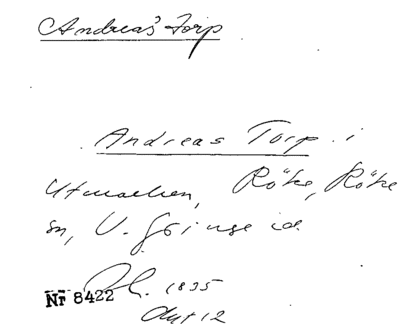 Andreas' Torp
Andreas Torp i
Utmarken, Röke, Röke
sn, V. Göinge hd.
1835
Nr 8422